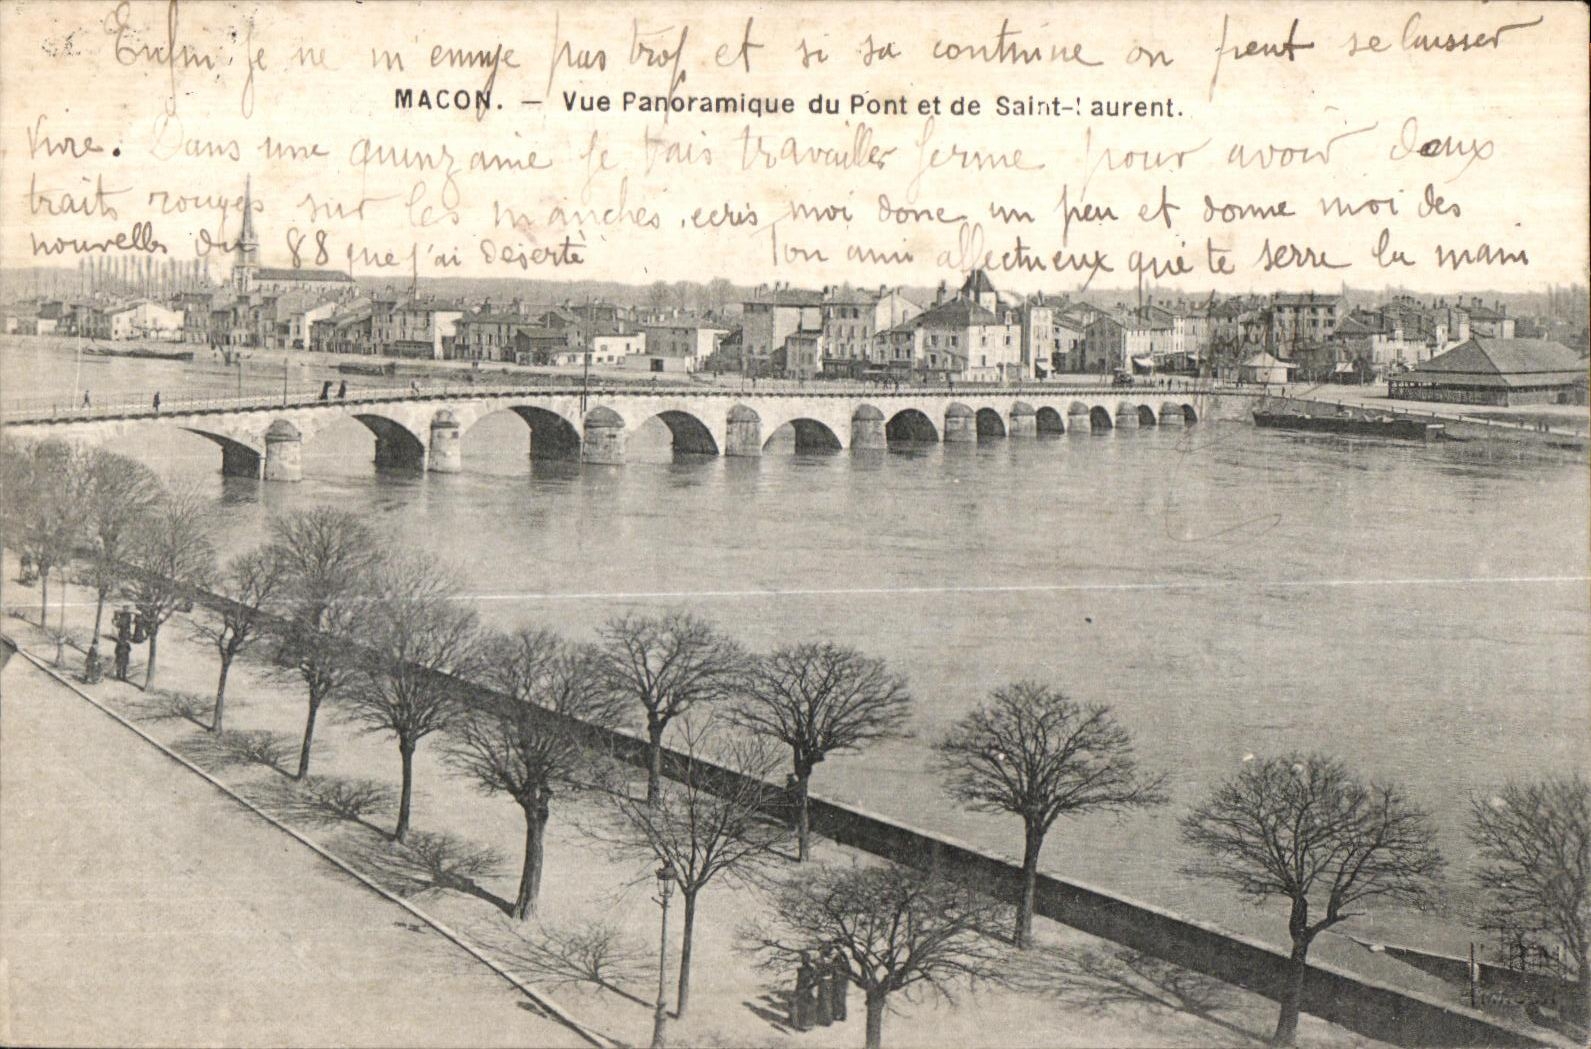 Enfin je ne m'ennuye pas trop et si sa continue on peut se laisser
MACON. — Vue Panoramique du Pont et de Saint-Laurent.
vivre. Dans une quinzaine je vais travailler ferme pour avoir deux
traits rouges sur les manches, ecris moi donc un peu et donne moi des
nouvelles du 88 que j'ai déserté
Ton ami affectueux qui te serre la main